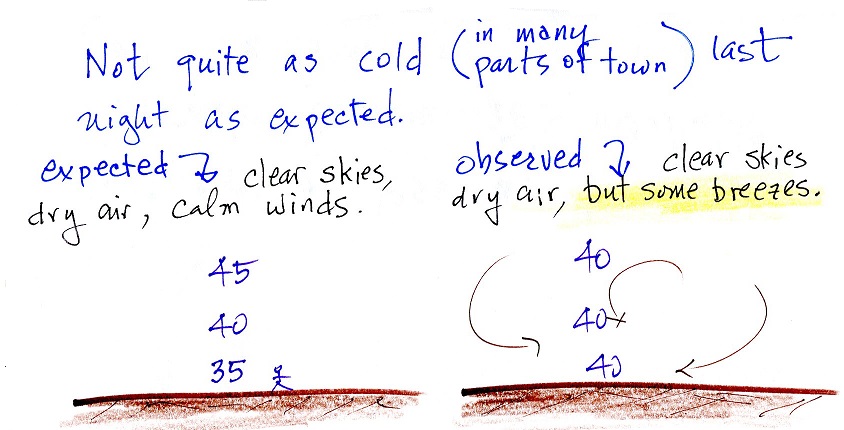 Not quite as cold (in many parts of town) last
night as expected.
expected clear skies,
dry air, calm winds.
45
40
35
observed clear skies
dry air, but some breezes.
40
40
40